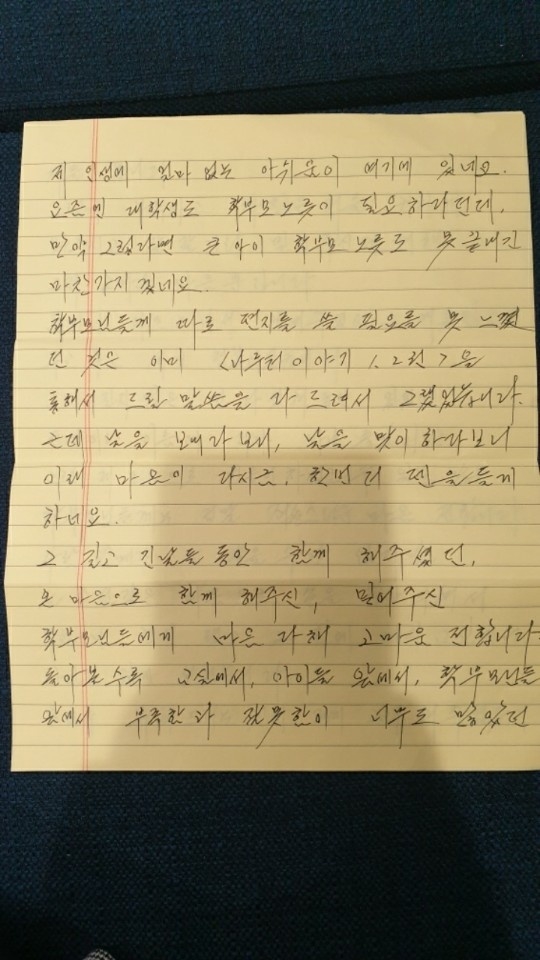 제 인생에 얼마 없는 아쉬움이 여기에 있네요.
요즌엔 대학생도 학부모노릇이 필요하다던데,
만약 그렇다면 큰아이 학부모노릇도 못끝내긴
마찬가지겠네요.
학부모님들께 따로 편지를 쓸 필요를 못 느꼈
던 것은 이미 <나루터이야기 1, 2권>을
통해서 드릴 말씀을 다 드려서 그랬었습니다.
근데 낮을 보내다보니, 낮을 맞이하다보니
이래 마음이 다시금, 한번 더 펜을 들게
하네요.
그 길고 긴날들 동안 함께 해주셨던,
온 마음으로 함께 해주신, 믿어주신
학부모님들에게 마음 다해 고마움 전합니다.
돌아볼수록 교실에서, 아이들 앞에서, 학부모님들
앞에서 부족함과 잘못함이 너무도 많았던